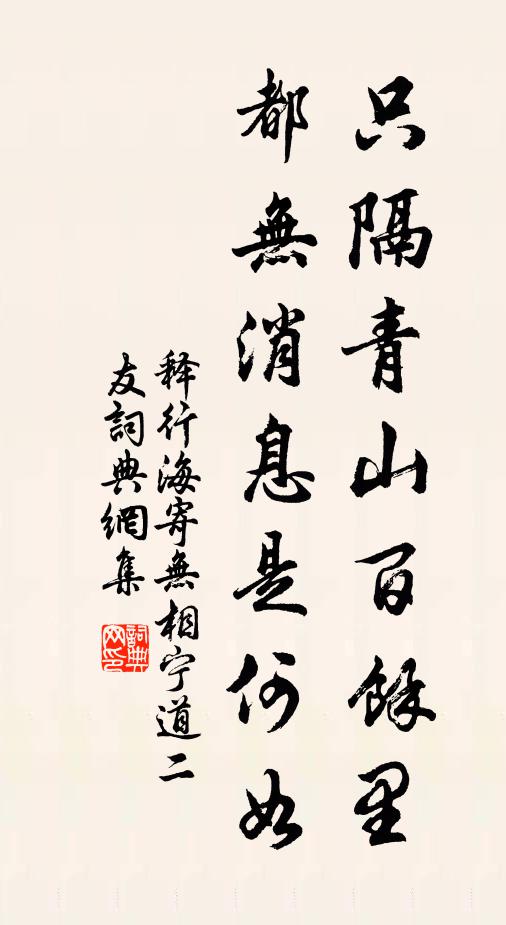 只隔青山百餘里
都無消息是何如
释行海寄無相宁道二
友詞典網集
詞典
网印